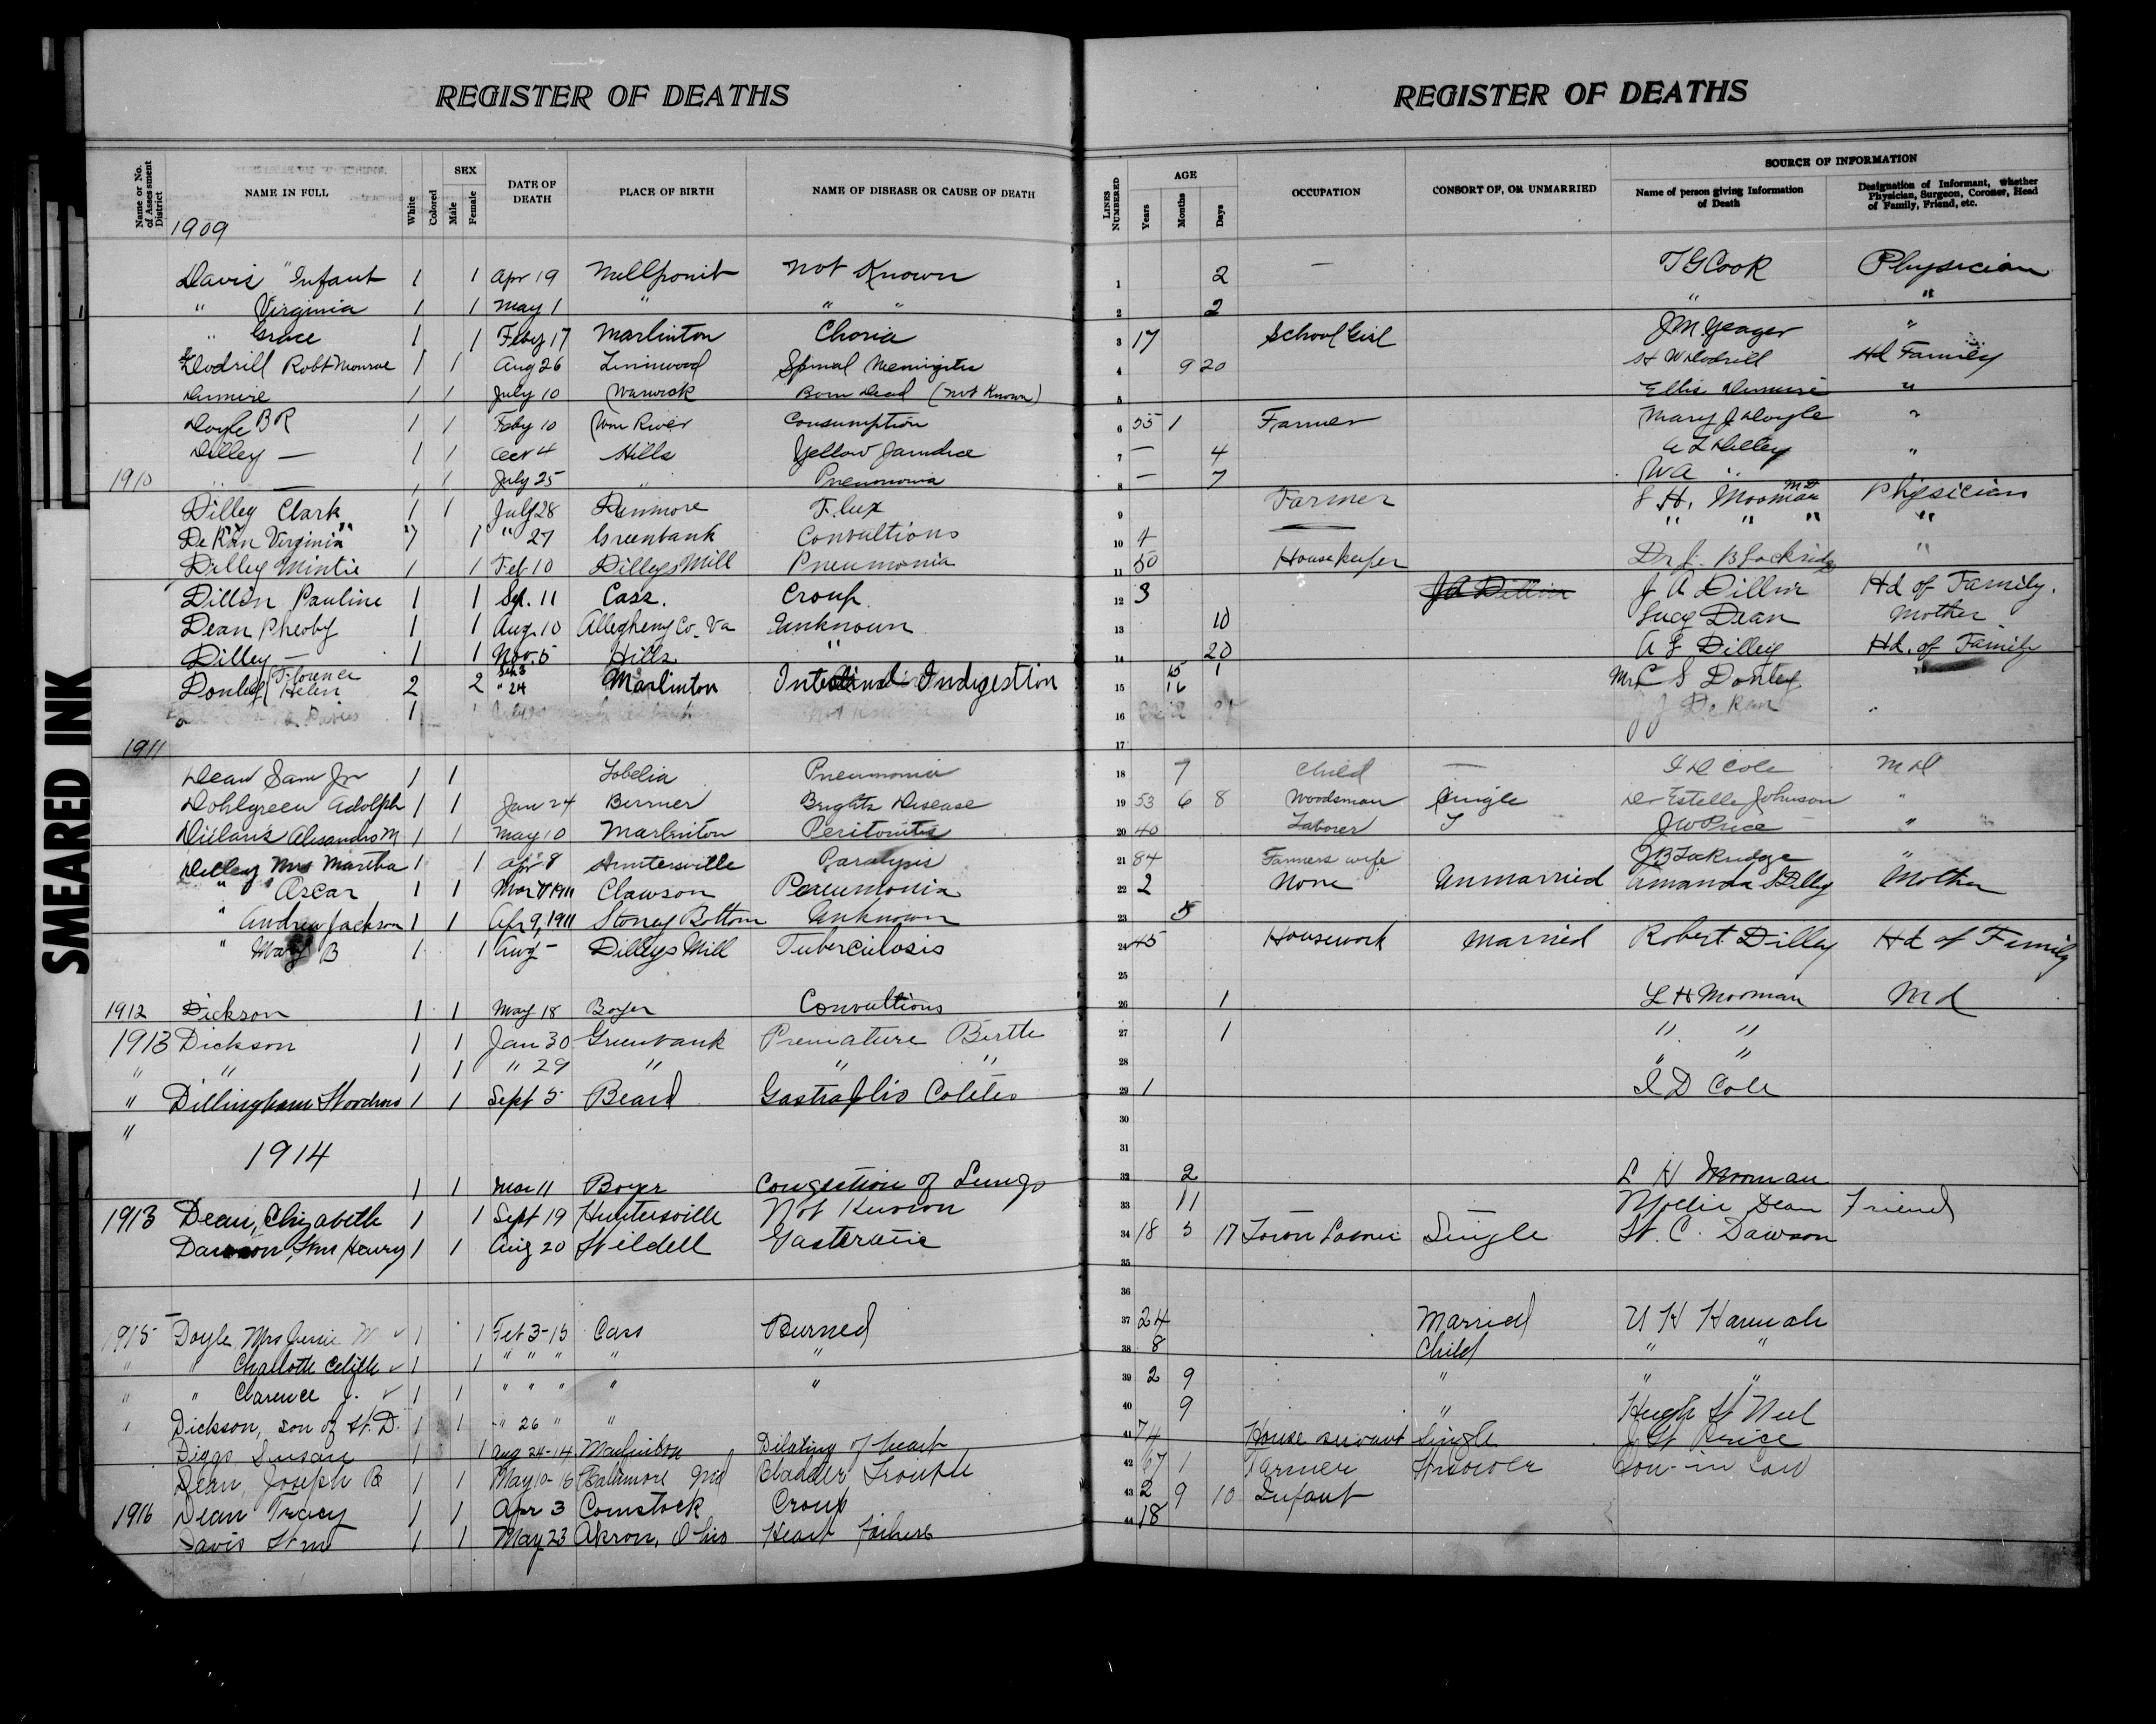 SMEARED INK
REGISTER OF DEATHS
Name or No. of Assessment District
NAME IN FULL
White
Colored
SEX
Male
Female
DATE OF DEATH
PLACE OF BIRTH
NAME OF DISEASE OR CAUSE OF DEATH
1909
Davis " Infant 1 1 Apr 19 Millpoint Not Known
" Virginia 1 1 May 1 " " "
" Grace 1 1 Feby 17 Marlinton Choria
Dodrill Robt Monroe 1 1 Aug 26 Linnwood Spinal Meningitis
Dumire 1 1 July 10 Warwick Born Dead (not Known)
Doyle B R 1 1 Feby 10 Wm River Consumption
Dilley — 1 1 Oct 4 Hills Yellow Jaundice
1910 " — 1 1 July 25 " Pneumonia
Dilley Clark 1 1 July 28 Dunmore Flux
De Ran Virginia 1 1 " 27 Greenbank Convultions
Dilley Mintie 1 1 Feb 10 Dilleys Mill Pneumonia
Dillon Pauline 1 1 Sep. 11 Cass. Croup
Dean Pheoby 1 1 Aug 10 Allegheny Co. Va Unknown
Dilley — 1 1 Nov. 5 Hills "
Donley Florence Helen 2 2 " 24 Marlinton Indigestion
1911
Dean Sam Jr 1 1 Lobelia Pneumonia
Dohlgreen Adolph 1 1 Jan 24 Burner Brights Disease
Alesandro M. 1 1 May 10 Marlinton Peritonitis
Dilley Mrs Martha 1 1 Apr 8 Huntersville Paralysis
" Oscar 1 1 Mar 1911 Clawson Pneumonia
" Andrew Jackson 1 1 Apr 9, 1911 Stoney Bottom Unknown
" Mary B 1 1 Aug - Dilleys Mill Tuberculosis
1912 Dickson 1 1 May 18 Boyer Convultions
1913 Dickson 1 1 Jan 30 Greenbank Premature Birth
" " 1 1 " 29 " " "
" Dillingham Woodrow 1 1 Sept 5 Beard
"
1914
1 1 Mar 11 Boyer Congestion of Lungs
1913 Dean, Elizabeth 1 1 Sept 19 Huntersville Not Known
Dawson, Wm Henry 1 1 Aug 20 Wildell
1915 Doyle, Mrs W 1 1 Feb 3-15 Cass Burned
" " Charlotte 1 1 " " " " "
" " Clarence J. 1 1 " " " " "
" Dickson, son of W. D. 1 1 " 26 " "
Diggs Susan 1 1 Aug 24-14 Marlinton of heart
Dean, Joseph B 1 1 May 10- Baltimore Md Bladder Trouble
1916 Dean Tracy 1 1 Apr 3 Comstock Croup
Davis Wm 1 1 May 23 Akron, Ohio Heart failure
REGISTER OF DEATHS
LINES NUMBERED
AGE
Years
Months
Days
OCCUPATION
CONSORT OF, OR UNMARRIED
SOURCE OF INFORMATION
Name of person giving Information of Death
Designation of Informant, whether Physician, Surgeon, Coroner, Head of Family, Friend, etc.
1 2 — T G Cook Physician
2 2 " "
3 17 School Girl J M Yeager "
4 9 20 H W Dodrill Hd Family
5 Ellis Dumire "
6 55 1 Farmer Mary J Doyle "
7 — 4 A L Dilley "
8 — 7 W A " "
9 Farmer L H. Mooman MD Physician
10 4 " " " "
11 50 House keeper Dr J. B Lockridge "
12 3 J A Dillon J A Dillon Hd of Family.
13 10 Lucy Dean Mother
14 20 A L Dilley Hd. of Family
15 15 1 16 Mrs C S Donley
16 J J De Ran "
17
18 7 Child — I D Cole M D
19 53 6 8 Woodsman Single Dr Estelle Johnson "
20 40 Laborer S J W Price "
21 84 Farmers wife J B Lockridge "
22 2 None Unmarried Amanda S Dilley Mother
23 5
24 45 Housework Married Robert Dilley Hd of Family
25
26 1 L H Mooman Md
27 1 " "
28 " "
29 1 I D Cole
30
31
32 2 L H Mooman
33 11 Mollie Dean Friend
34 18 5 17 Single W. C. Dawson
35
36
37 24 Married U H Hannah
38 8 Child " "
39 2 9 " " "
40 9 " Hugh
41 74 House servant Single J W Price
42 67 1 Farmer Widower Son-in Law
43 2 9 10 Infant
44 18